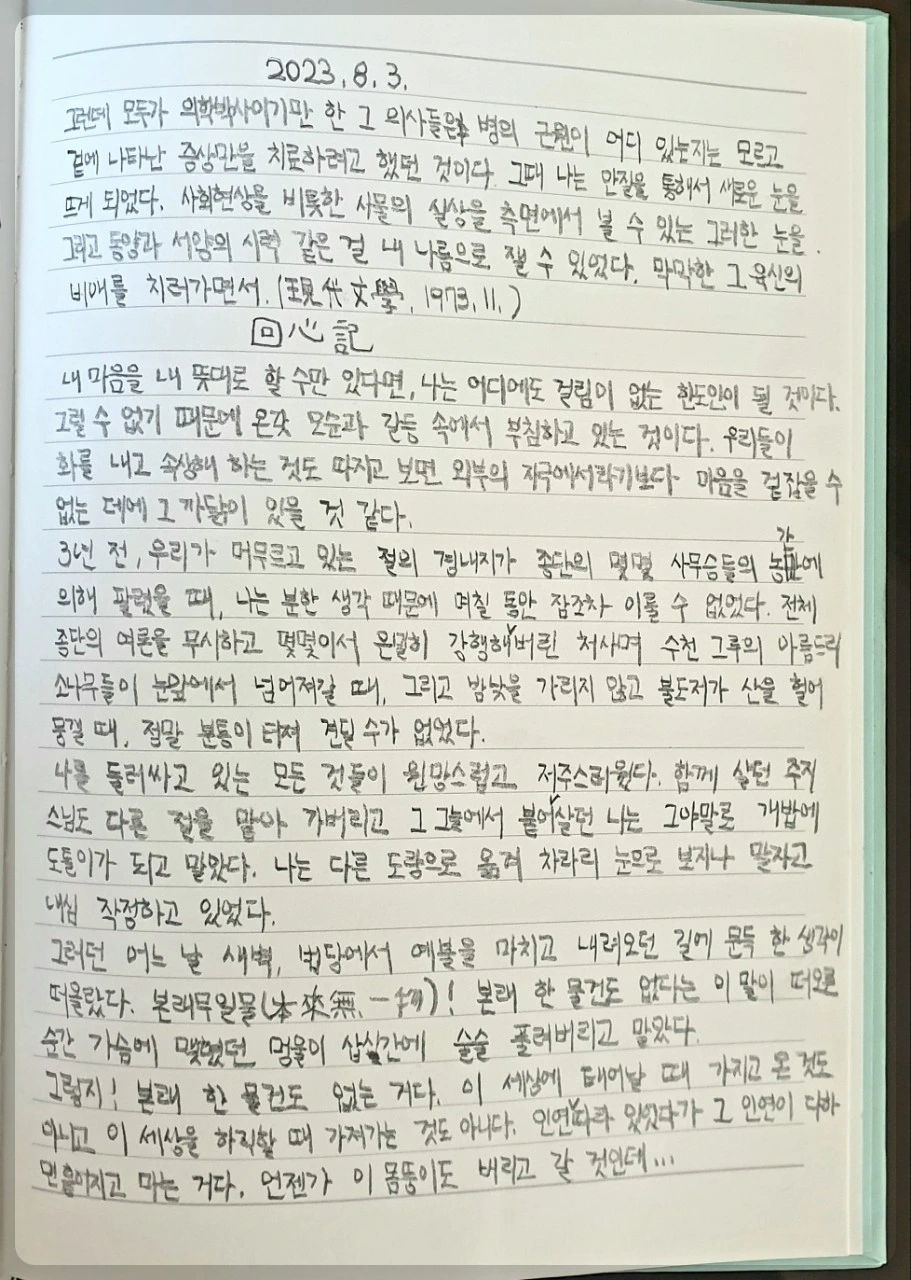 2023.8.3.
그런데 모두가 의학박사이기만 한 그 의사들은 병의 근원이 어디 있는지는 모르고
겉에 나타난 증상만을 치료하려고 했던 것이다. 그때 나는 안질을 통해서 새로운 눈을
뜨게 되었다. 사회현상을 비롯한 사물의 실상을 측면에서 볼 수 있는 그러한 눈을.
그리고 동양과 서양의 시력 같은 걸 내 나름으로 잴 수 있었다. 막막한 그 육신의
비애를 치러가면서. (現代文學, 1973.11.)
回心記
내 마음을 내 뜻대로 할 수만 있다면, 나는 어디에도 걸림이 없는 한도인이 될 것이다.
그럴 수 없기 때문에 온갖 모순과 갈등 속에서 부침하고 있는 것이다. 우리들이
화를 내고 속상해 하는 것도 따지고 보면 외부의 자극에서라기보다 마음을 걷잡을 수
없는 데에 그 까닭이 있을 것 같다.
3년 전, 우리가 머무르고 있는 절의 경내지가 종단의 몇몇 사무승들의 농간에
의해 팔렸을 때, 나는 분한 생각 때문에 며칠 동안 잠조차 이룰 수 없었다. 전체
종단의 여론을 무시하고 몇몇이서 은밀히 강행해∨버린 처사며 수천 그루의 아름드리
소나무들이 눈앞에서 넘어져갈 때, 그리고 밤낮을 가리지 않고 불도저가 산을 헐어
뭉갤 때, 정말 분통이 터져 견딜 수가 없었다.
나를 둘러싸고 있는 모든 것들이 원망스럽고 저주스러웠다. 함께 살던 주지
스님도 다른 절을 맡아 가버리고 그 그늘에서 붙어∨살던 나는 그야말로 개밥에
도톨이가 되고 말았다. 나는 다른 도량으로 옮겨 차라리 눈으로 보지나 말자고
내심 작정하고 있었다.
그러던 어느 날 새벽, 법당에서 예불을 마치고 내려오던 길에 문득 한 생각이
떠올랐다. 본래무일물(本來無一物)! 본래 한 물건도 없다는 이 말이 떠오른
순간 가슴에 맺혔던 멍울이 삽시간에 술술 풀려버리고 말았다.
그렇지! 본래 한 물건도 없는 거다. 이 세상에 태어날 때 가지고 온 것도
아니고 이 세상을 하직할 때 가져가는 것도 아니다. 인연∨따라 있었다가 그 인연이 다하
면 흩어지고 마는 거다. 언젠가 이 몸뚱이도 버리고 갈 것인데...